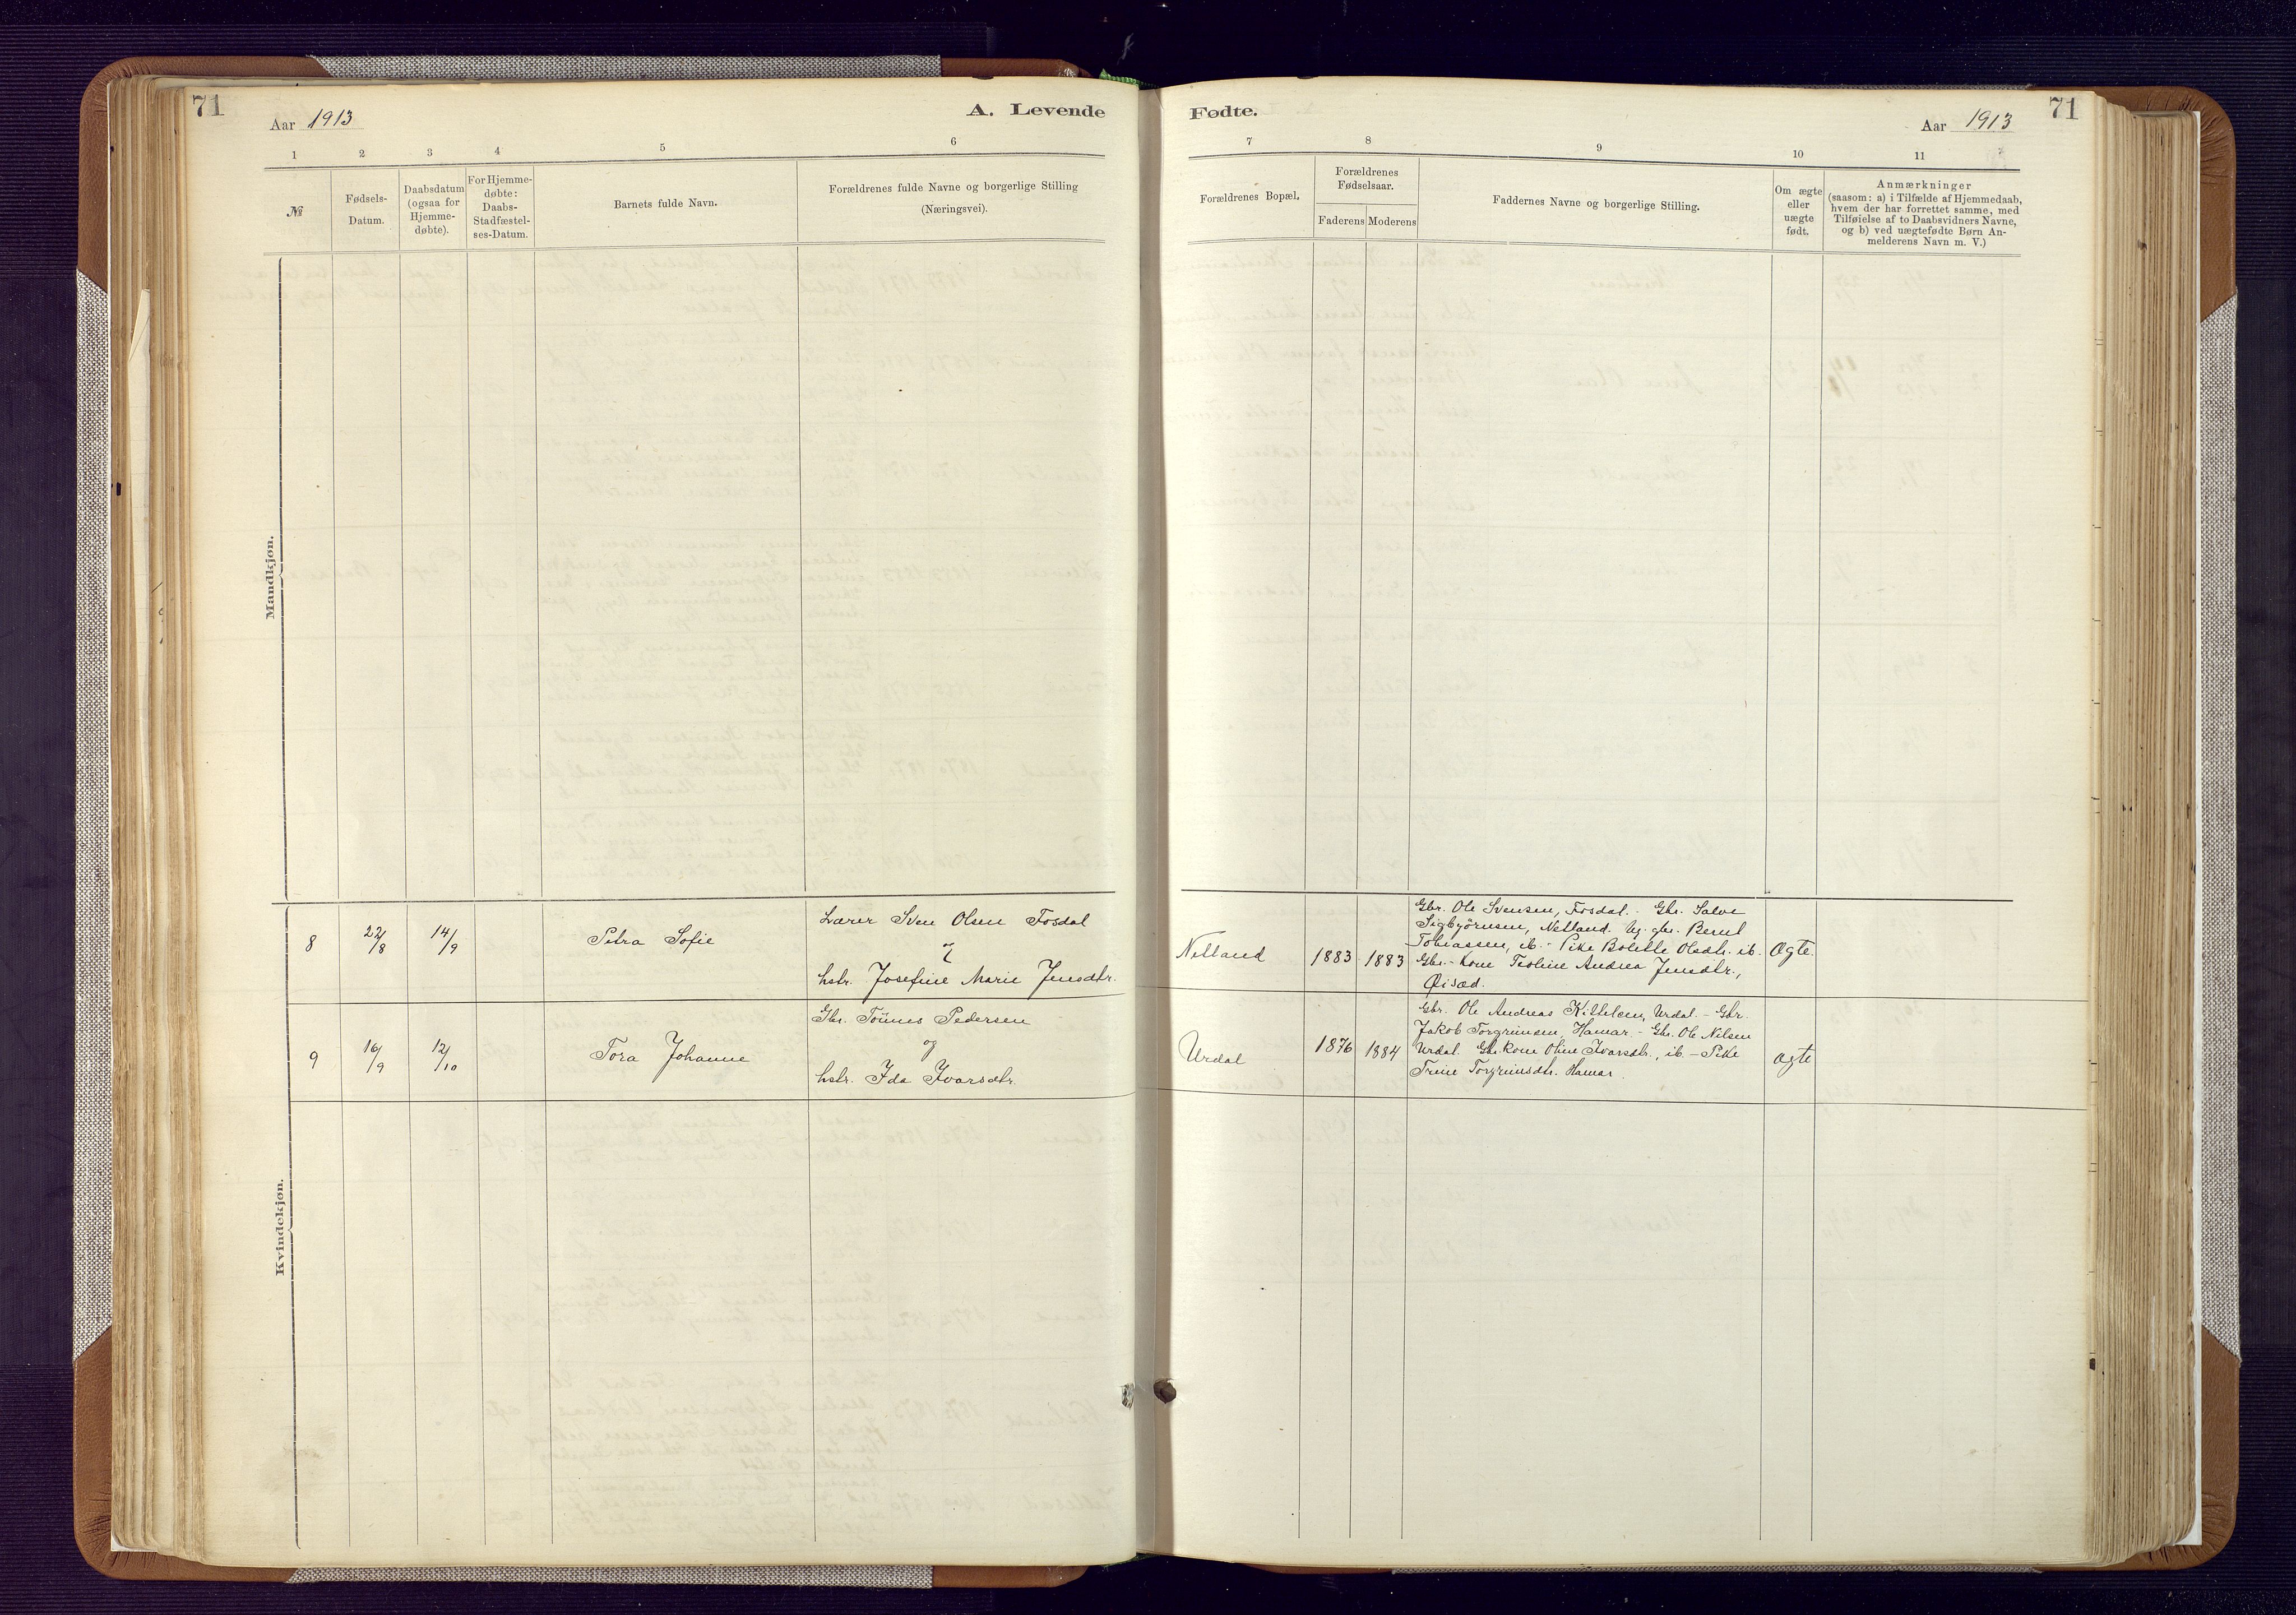 71
Aar 1913
A. Levende
Fødte.
Aar 1913
71
1 2 3 4 5 6 7 8 9 10 11
№
Fødsels-
Datum.
Daabsdatum
(ogsaa for
Hjemme-
døbte).
For Hjemme-
døbte:
Daabs-
Stadfæstel-
ses-Datum.
Barnets fulde Navn.
Forældrenes fulde Navne og borgerlige Stilling
(Næringsvei).
Forældrenes Bopæl.
Forældrenes
Fødselsaar.
Faderens Moderens
Faddernes Navne og borgerlige Stilling.
Om ægte
eller
uægte
født.
Anmærkninger
(saasom: a) i Tilfælde af Hjemmedaab,
hvem der har forrettet samme, med
Tilføielse af to Daabsvidners Navne,
og b) ved uægtefødte Børn An-
melderens Navn m. V.)
Mandkjøn.
Kvindekjøn.
8
22/8
14/9
Petra Sofie
Lærer Sven Olsen Fosdal
og
hstr. Josefine Marie Jensdtr.
Netland
1883
1883
Gbr. Ole Svensen, Fosdal. - Gbr. Salve
Sigbjörnsen, Netland. Ug. gbr. Bernt
Tobiassen, ib. - Pike Bolette Olsdtr. ib.
Gbr.-Kone Teoline Andrea Jensdtr.,
Øisæd.
Ægte.
9
16/9
12/10
Tora Johanne
Gbr. Tönnes Pedersen
og
hstr. Ida Ivarsdtr.
Urdal
1876
1884
Gbr. Ole Andreas Kittelsen, Urdal. - Gbr.
Jakob Torgrimsen, Hamar - Gbr. Ole Nilsen
Urdal. Gbr.kone Oline Ivarsdtr., ib. - Pike
Trine Torgrimsdtr. Hamar.
Ægte